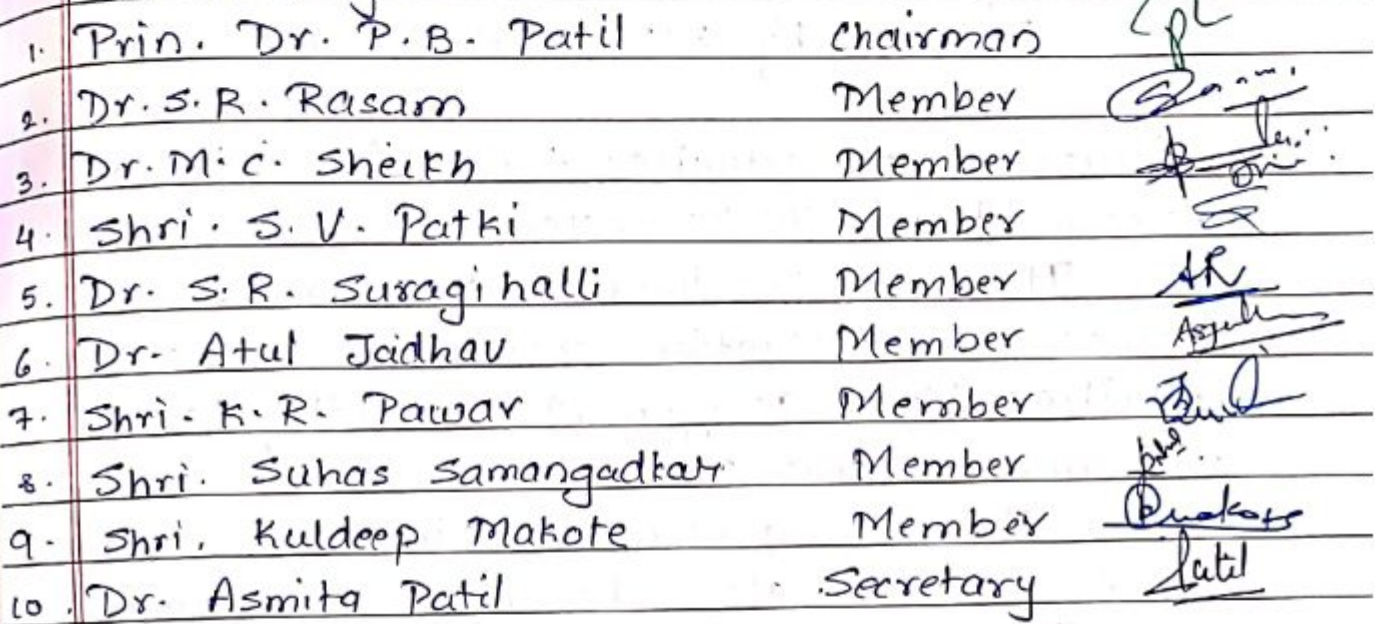 1. Prin. Dr. P.B. Patil Chairman
2. Dr. S. R. Rasam Member
3. Dr. M. C. Sheikh Member
4. Shri. S. V. Patki Member
5. Dr. S. R. Suragihalli Member AR
6. Dr. Atul Jadhav Member
7. Shri. K. R. Pawar Member
8. Shri. Suhas Samangadkar Member
9. Shri. Kuldeep Makote Member
10. Dr. Asmita Patil Secretary Patil